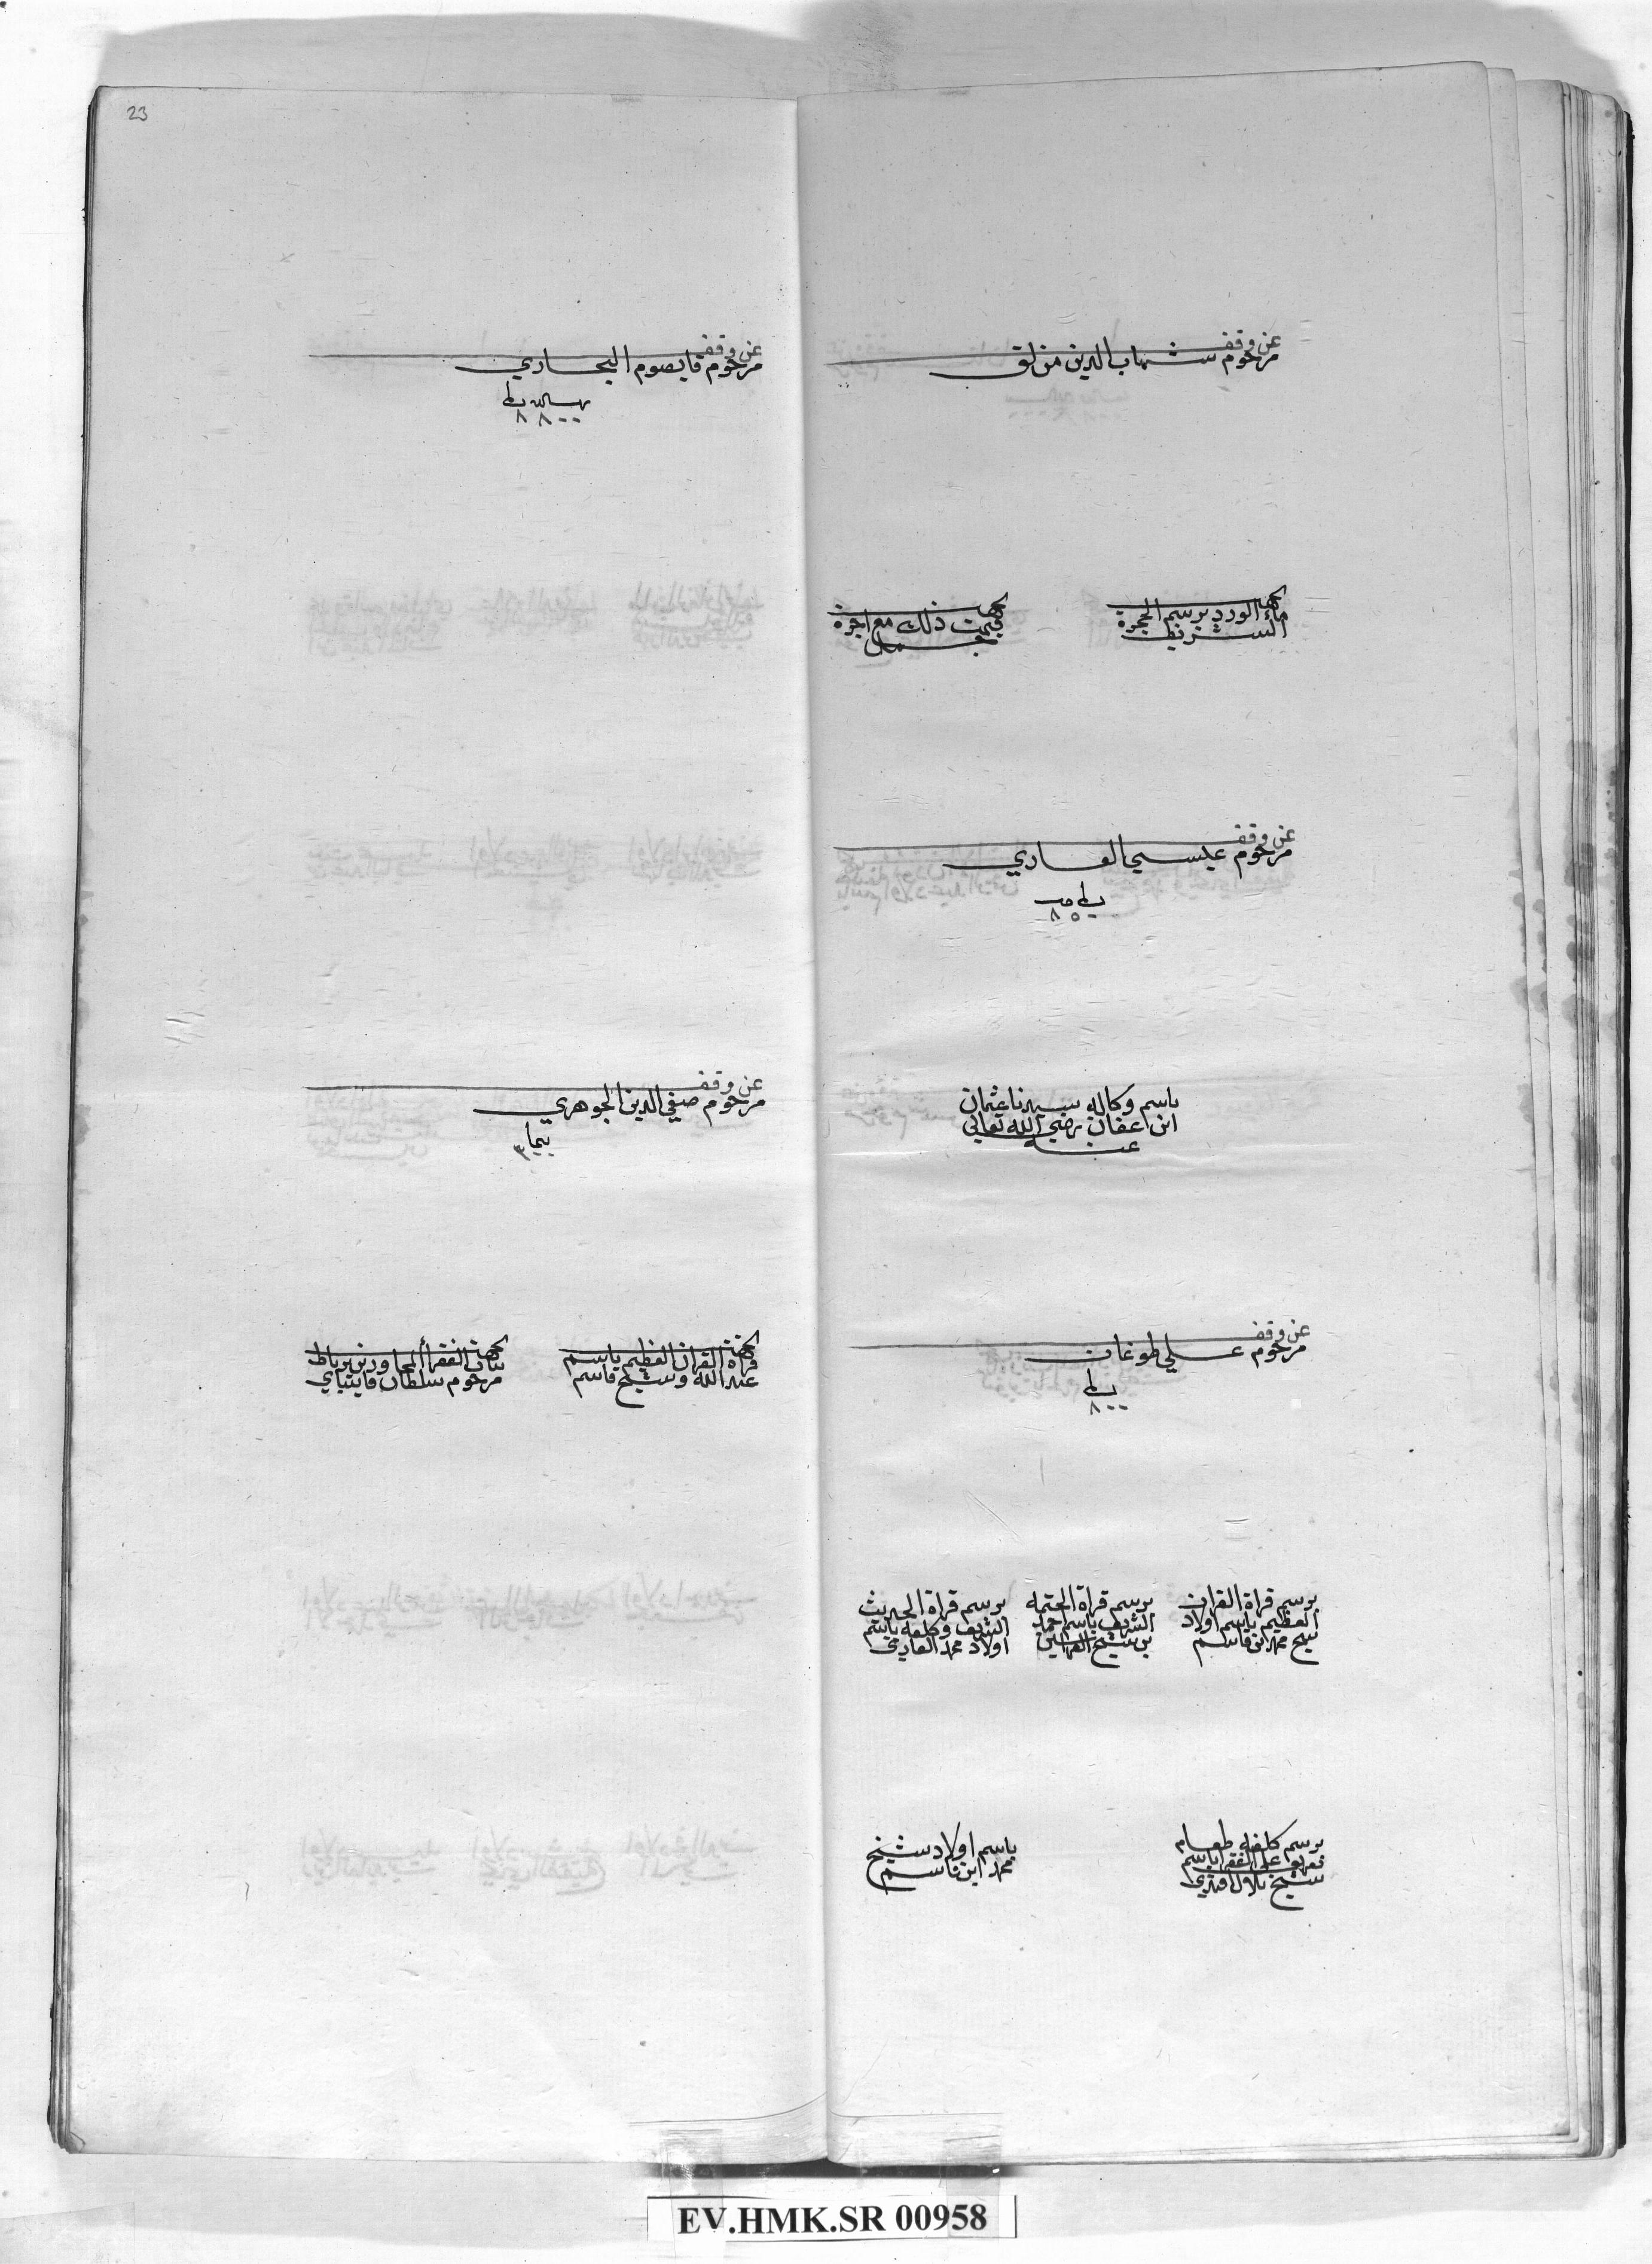 عن وقف
مرحوم شهاب الدين مزلق
لجهت
ماء الورد برسم الحجرة
الشريفه
لجهت
قيمت ذلك مع اجرة
عن وقف
مرحوم عيسى القادري
٨٥٠
باسم وكاله سيدنا عثمان
ابن اعفان رضي الله تعالى
عنه
عن وقف
مرحوم على طوغان
٨٠٠
برسم قراة القران
العظيم باسم اولاد
شيخ محمد ابن قاسم
برسم قراة الختمه
الشريف باسم احمد
بن شيخ
برسم قراة الحديث
الشريف وكلفه باسم
اولاد محمد القادري
برسم كلفه طعام
على الفقرا باسم
شيخ بلال افندي
باسم اولاد شيخ
محمد ابن قاسم
23
عن وقف
مرحوم قايصوم
٨ ٨٠٠
عن وقف
مرحوم صفي الدين الجوهري
٣
لجهت
قراة القران العظيم باسم
عبد الله وشيخ قاسم
لجهت
الفقرأ المجاورين برباط
مرحوم سلطان قايتباي
EV.HMK.SR 00958